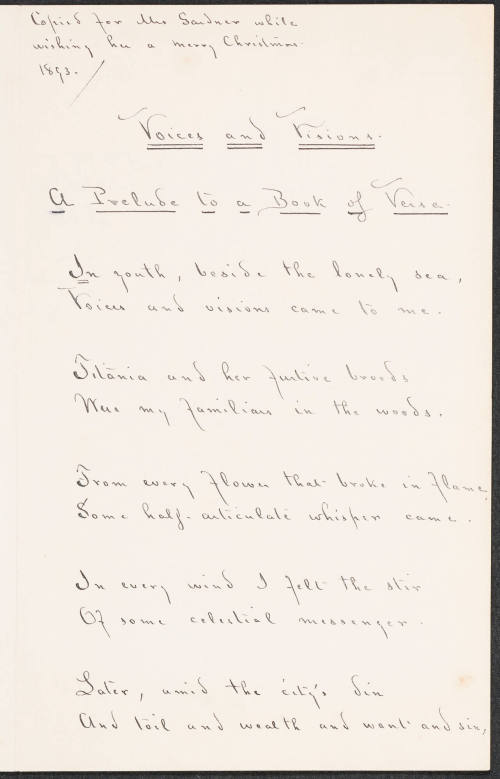 Copied for Mrs Gardner while
wishing her a merry Christmas.
1893.
Voices and Visions.
A Prelude to a Book of Verse.
In youth, beside the lonely sea,
Voices and visions came to me.
Titania and her furtive broods
Were my familiars in the woods.
From every flower that broke in flame,
Some half-articulate whisper came.
In every wind I felt the stir
Of some celestial messenger.
Later, amid the city's din
And toil and wealth and want and sin,